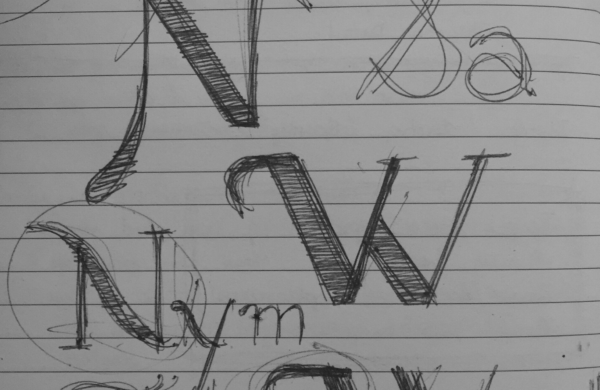 N & a
W
N y m